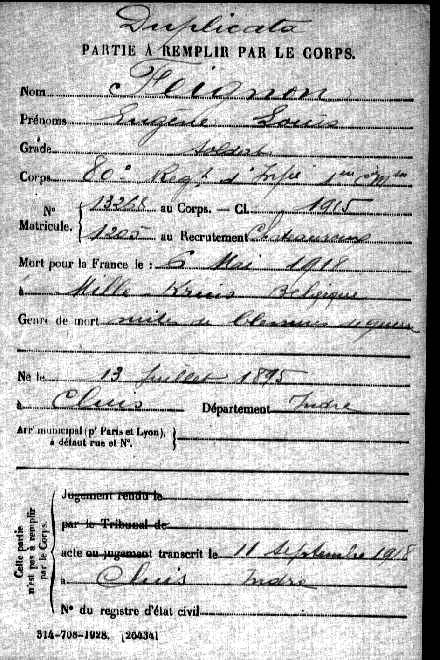 Duplicata
PARTIE À REMPLIR PAR LE CORPS.
Nom Feignon
Prénoms Eugène Louis
Grade soldat
Corps 80e Regt d'Infie 1ere Cie Mtes
N° 13268 au Corps. — Cl. 1915
Matricule. 1205 au Recrutement Chateauroux
Mort pour la France le : 6 Mai 1918
à Mille Kruis Belgique
Genre de mort suites de blessures de guerre
Né le 13 Juillet 1895
à Cluis Département Indre
Arrt municipal (pr Paris et Lyon),
à défaut rue et N°.
Cette partie n'est pas à remplir par le Corps.
Jugement rendu le
par le Tribunal de
acte ou jugement transcrit le 11 septembre 1918
à Cluis Indre
N° du registre d'état civil
314-708-1928. [26434]